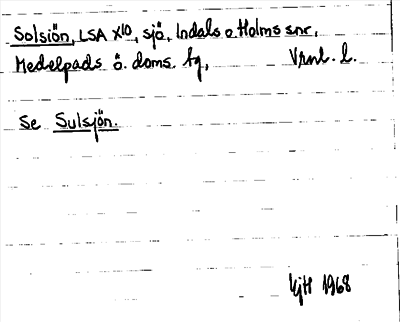 Solsiön, LSA X10, sjö, Indals o Holms snr,
Medelpads ö. doms. tg, Vrnl. l.
Se Sulsjön.
KjH 1968